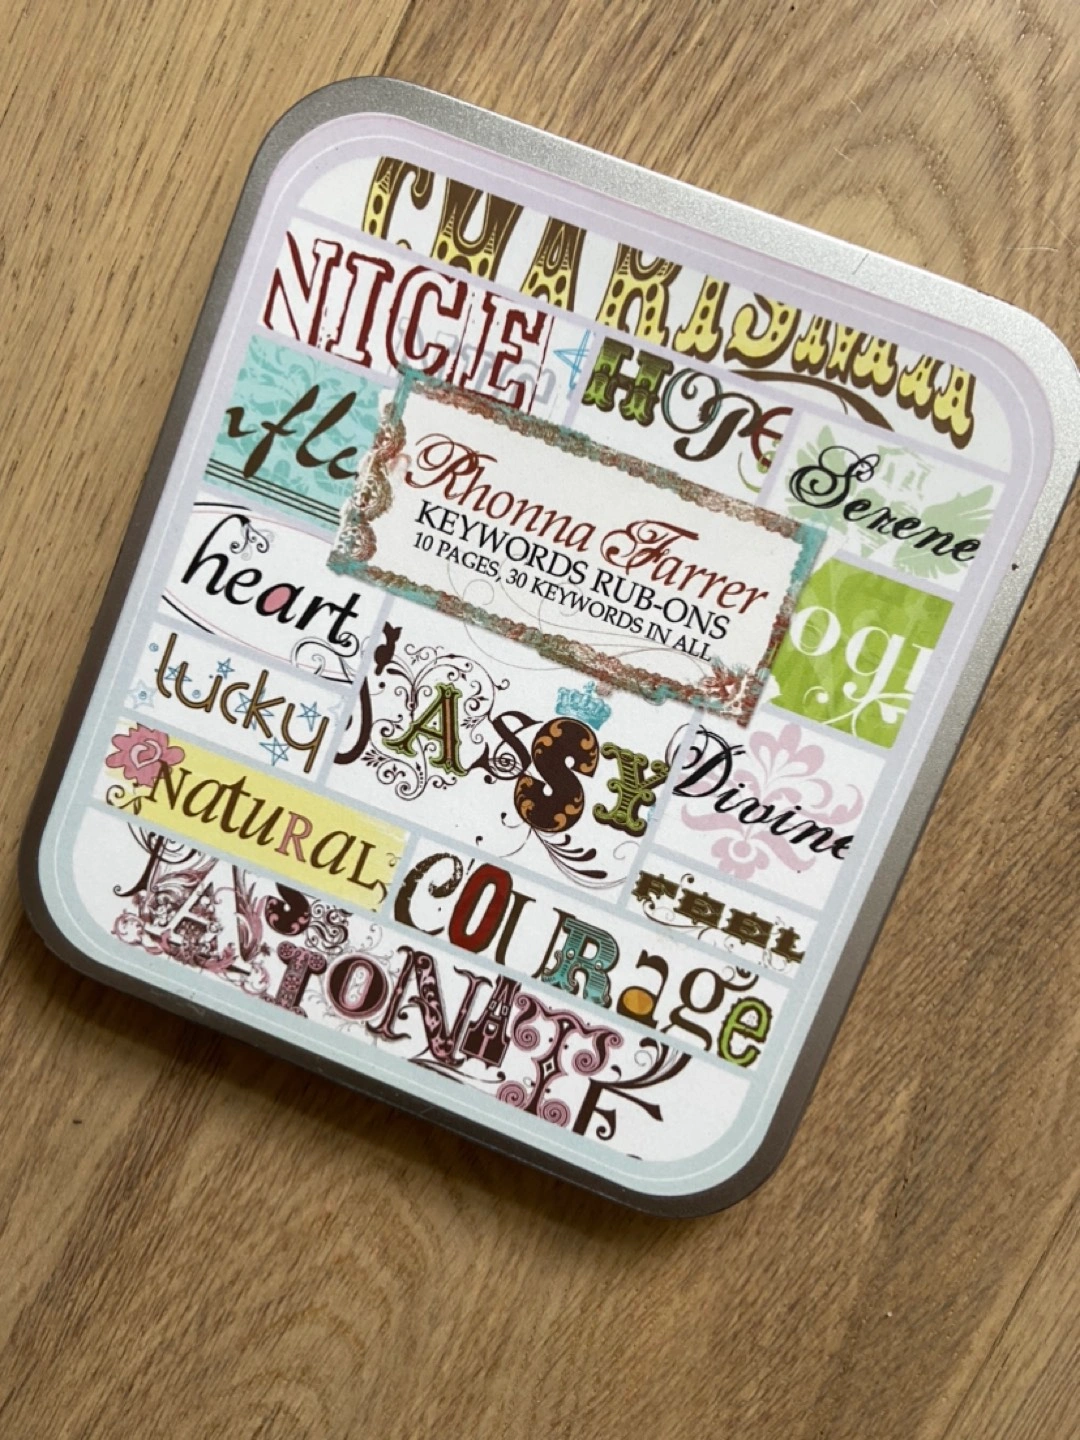 CHARISMA
NICE
HOPE
Serene
Rhonna Farrer
KEYWORDS RUB-ONS
10 PAGES, 30 KEYWORDS IN ALL
heart
ogi
lucky
SASSY
Divine
NATURAL
COURAGE
FEEL
PASSIONATE